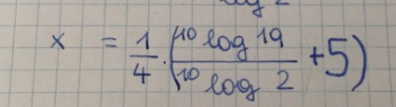 x = 1/4 · (¹⁰log 19 / ¹⁰log 2 + 5)